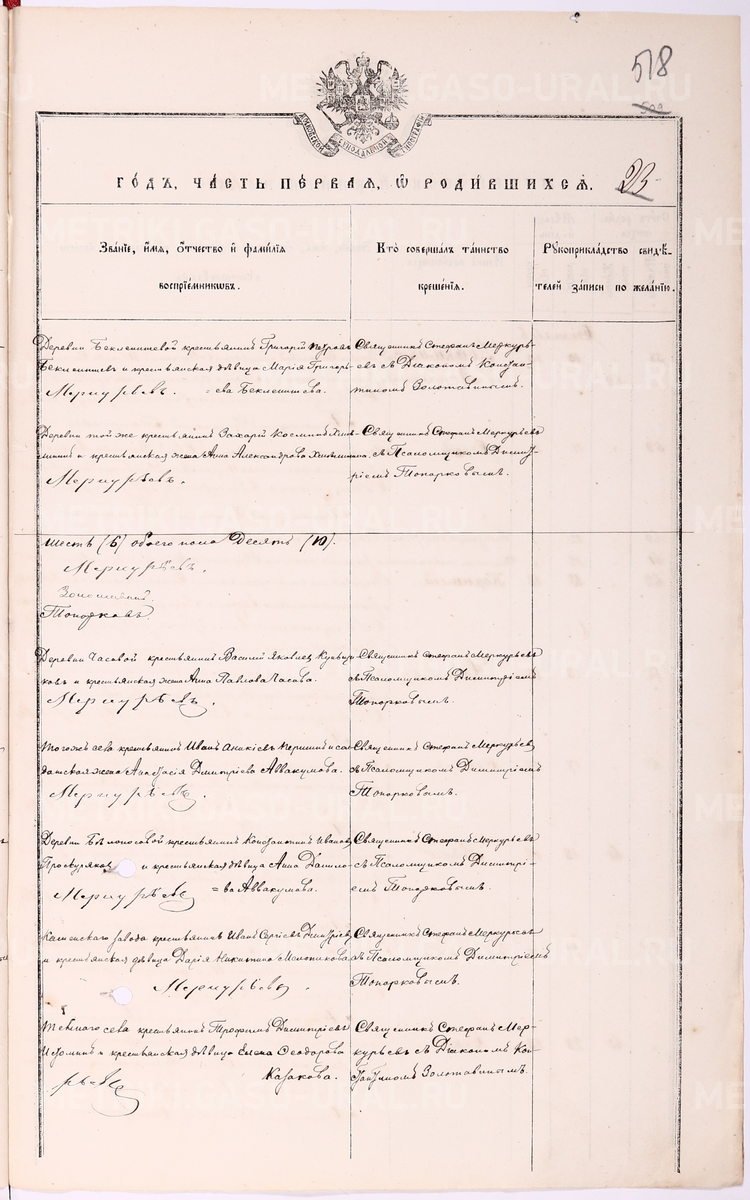 518
ГОДЪ, ЧАСТЬ ПЕРВАЯ, Ѿ РОДИВШИХСЯ.
23
Званіе, имя, отчество и фамилія
воспріемниковъ.
Кто совершалъ таинство
крещенія.
Рукоприкладство свидѣ-
телей записи по желанію.
Деревни Беклемишевой крестьянинъ Григорій Петровъ
Беклемишевъ и крестьянская дѣвица Марія Григорь-
=ева Беклемишева.
Меркурьевъ.
Священникъ Стефанъ Меркурь-
евъ съ Діакономъ Констан-
тиномъ Золотавинымъ.
Деревни той же крестьянинъ Захарій Косминъ
и крестьянская жена Анна Александрова
Меркурьевъ.
Священникъ Стефанъ Меркурьевъ
съ Псаломщикомъ Димит-
ріемъ Топорковымъ.
шесть (6) обоего пола Десять (10).
Меркурьевъ.
Топорковъ
Деревни Часовой крестьянинъ Василій Яковлевъ
и крестьянская жена Анна Павлова Часова.
Меркурьевъ.
Священникъ Стефанъ Меркурьевъ
съ Псаломщикомъ Димитріемъ
Топорковымъ.
Того же села крестьянинъ Иванъ Аникіевъ и сол-
датская жена Анастасія Димитріева Аввакумова.
Меркурьевъ.
Священникъ Стефанъ Меркурьевъ
съ Псаломщикомъ Димитріемъ
Топорковымъ.
Деревни Бѣлоносовой крестьянинъ Константинъ Ивановъ
Просвиряковъ и крестьянская дѣвица Анна Данило-
=ва Аввакумова.
Меркурьевъ
Священникъ Стефанъ Меркурьевъ
съ Псаломщикомъ Димитрі-
емъ Топорковымъ.
Каменскаго завода крестьянинъ Иванъ Сергіевъ Дмитріевъ
и крестьянская дѣвица Дарія Никитина Мелотникова
Меркурьевъ.
Священникъ Стефанъ Меркурьевъ
съ Псаломщикомъ Димитріемъ
Топорковымъ.
села крестьянинъ Трофимъ Димитріевъ
и крестьянская дѣвица Елена Ѳеодорова
Казакова.
Священникъ Стефанъ Мер-
курьевъ съ Діакономъ Кон-
стантиномъ Золотавинымъ.